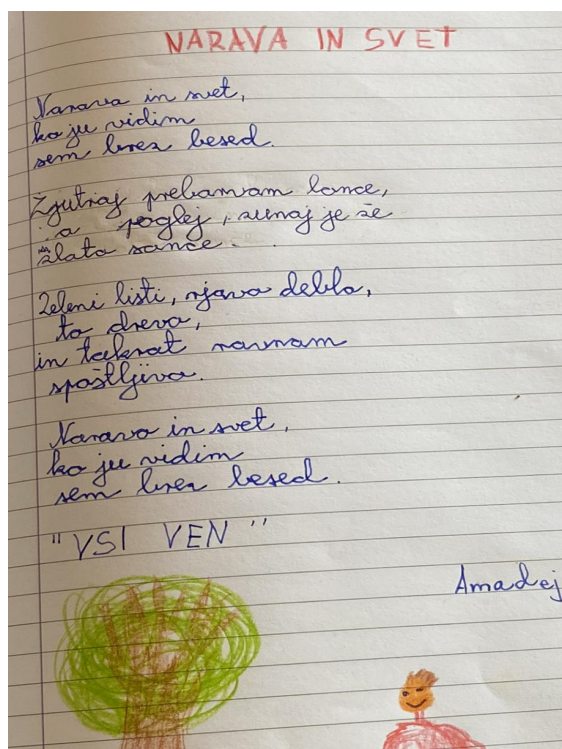 NARAVA IN SVET
Narava in svet,
ko ju vidim
sem brez besed.
Zjutraj prebamam lonce,
a poglej, zunaj je že
zlato sonce.
Zeleni listi, rjava debla,
to dreva,
in takrat ravnam
spoštljivo.
Narava in svet,
ko ju vidim
sem brez besed.
"VSI VEN"
Amadej